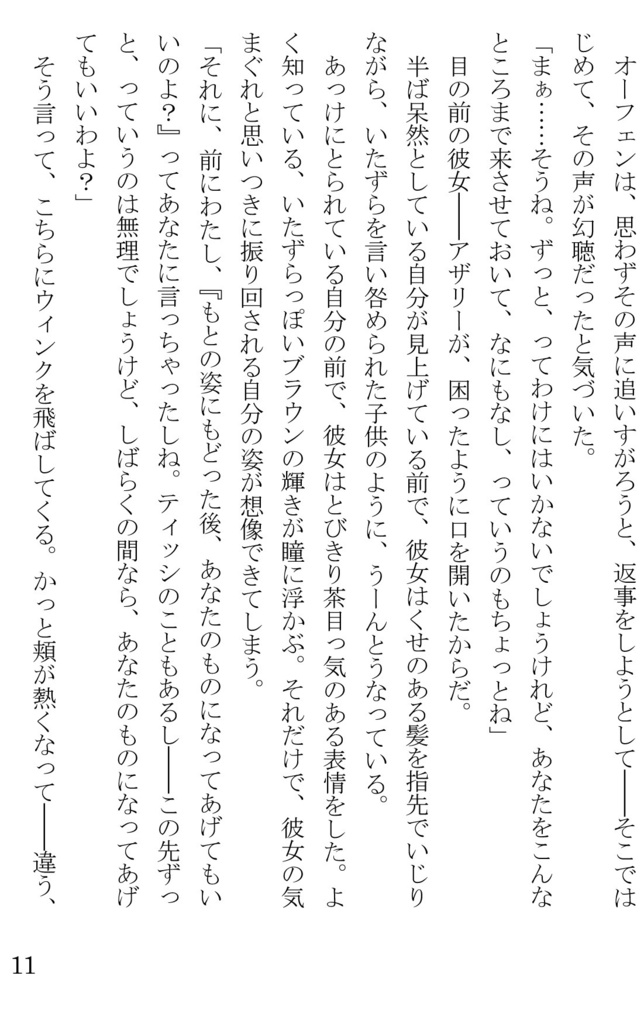 オーフェンは、思わずその声に追いすがろうと、返事をしようとして――そこでは
じめて、その声が幻聴だったと気づいた。
「まぁ……そうね。ずっと、ってわけにはいかないでしょうけれど、あなたをこんな
ところまで来させておいて、なにもなし、っていうのもちょっとね」
　目の前の彼女――アザリーが、困ったように口を開いたからだ。
　半ば呆然としている自分が見上げている前で、彼女はくせのある髪を指先でいじり
ながら、いたずらを言い咎められた子供のように、うーんとうなっている。
　あっけにとられている自分の前で、彼女はとびきり茶目っ気のある表情をした。よ
く知っている、いたずらっぽいブラウンの輝きが瞳に浮かぶ。それだけで、彼女の気
まぐれと思いつきに振り回される自分の姿が想像できてしまう。
「それに、前にわたし、『もとの姿にもどった後、あなたのものになってあげてもい
いのよ？』ってあなたに言っちゃったしね。ティッシのこともあるし――この先ずっ
と、っていうのは無理でしょうけど、しばらくの間なら、あなたのものになってあげ
てもいいわよ？」
　そう言って、こちらにウィンクを飛ばしてくる。かっと頬が熱くなって――違う、
11